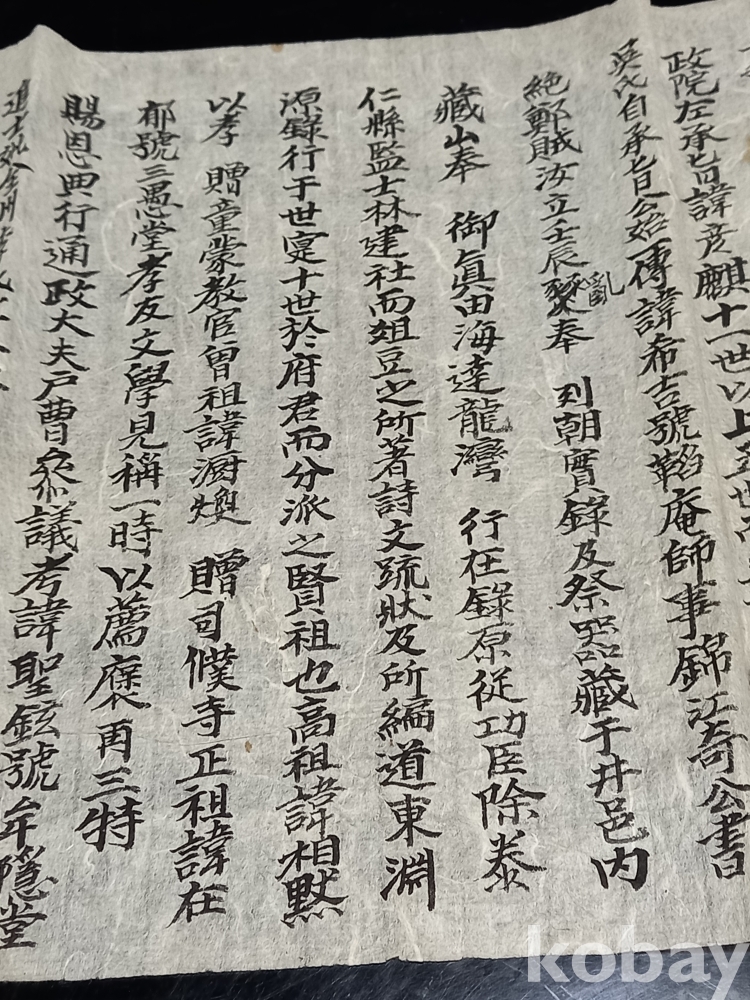 政院左承旨諱彦麒十一世以上
吳氏自承旨公始傳諱希吉號韜庵師事錦江奇公書
絶鄭賊汝立壬辰亂奉 列朝實錄及祭器藏于井邑內
藏山奉 御眞由海達龍灣 行在錄原從功臣除泰
仁縣監士林建社而俎豆之所著詩文疏狀及所編道東淵
源錄行于世寔十世於府君而分派之賢祖也高祖諱相默
以孝 贈童蒙教官曾祖諱 煥 贈司僕寺正祖諱在
郁號三愚堂孝友文學見稱一時以薦褒再三特
賜恩典行通政大夫戶曹參議考諱聖鉉號牟隱堂
kobay